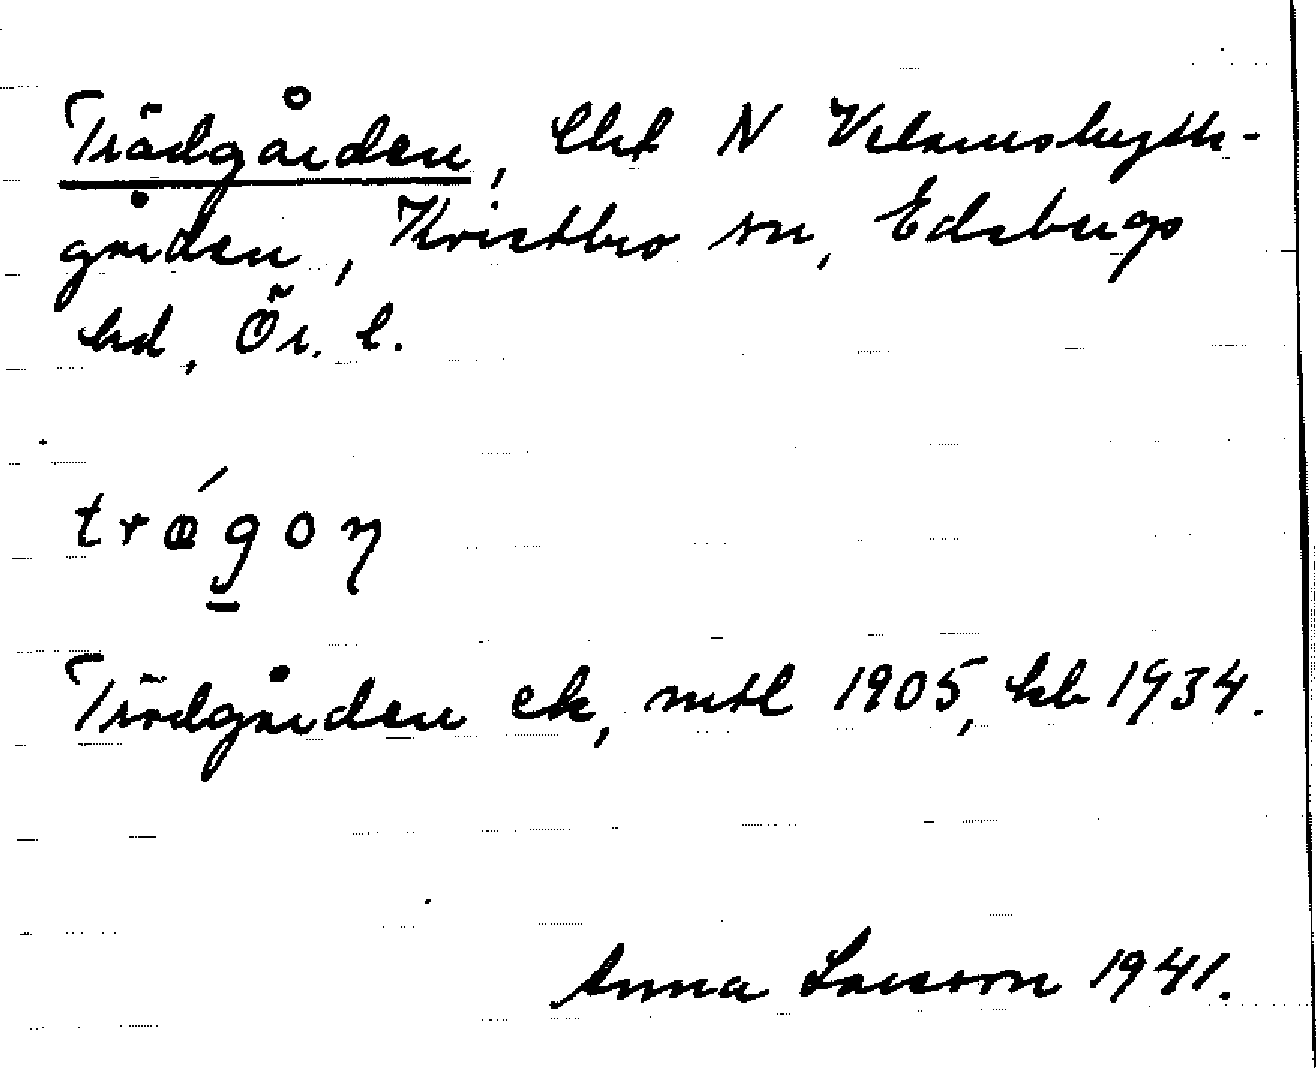 Trädgården, Lht N Velamshytte-
gården, Kvistbro sn, Edsbergs
hd, Ör. l.
træ´g̱oɳ
Trädgården ek, mtl 1905, kb 1934.
Anna Larsson 1941.